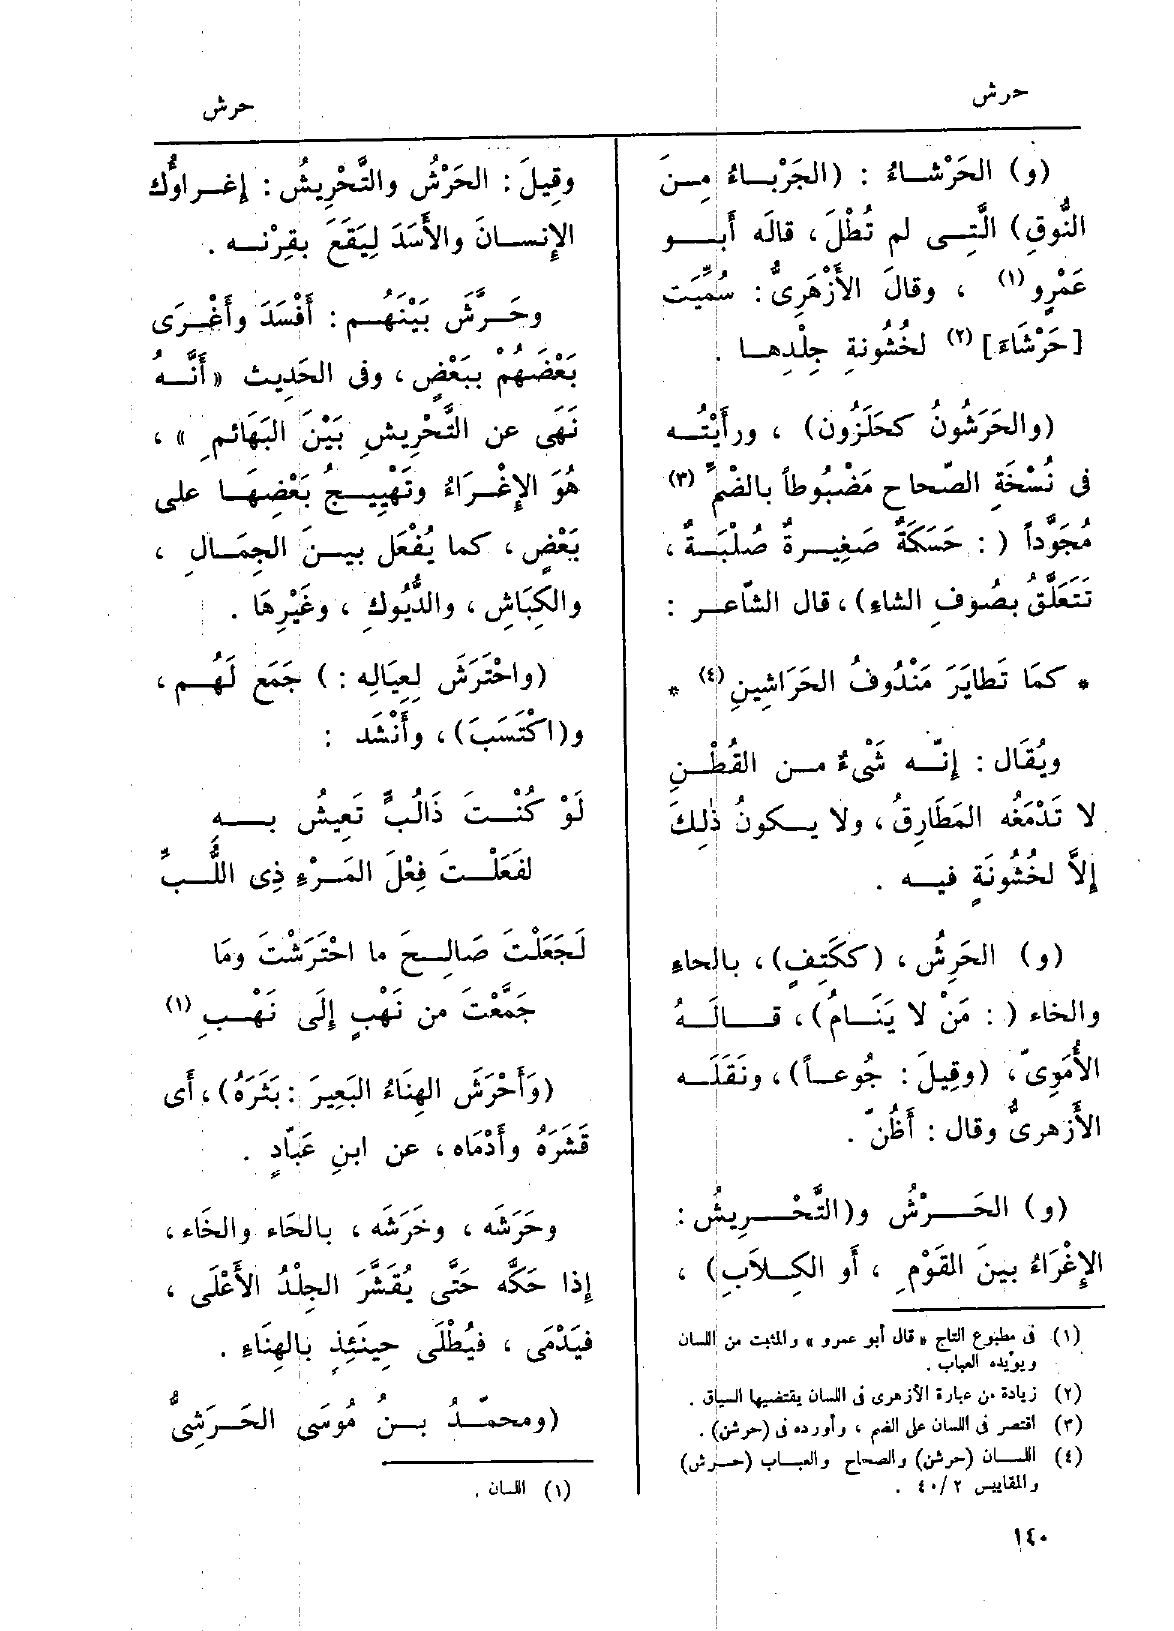 حرش
(و) الحَرْشاءُ : (الجَرْباءُ مِنَ
النُّوقِ) الَّتِى لم تُطْلَ، قالَه أَبو
عَمْرٍو(١) ، وقالَ الأَزْهَرِىُّ: سُمِّيَت
[حَرْشَاءَ](٢) لخُشُونةِ جِلْدِها .
(والحَرَشُونُ كحَلَزُون) ، ورأَيْتُه
فى نُسْخَةِ الصّحاحِ مَضْبُوطاً بالضّمِّ(٣)
مُجَوَّداً ( : حَسَكَةٌ صَغِيرةٌ صُلْبَةٌ ،
تَتَعَلَّقُ بصُوفِ الشاءِ)، قال الشّاعر :
* كمَا تَطايَرَ مَنْدُوفُ الحَرَاشِينِ(٤) *
ويُقَال : إِنّه شَىْءٌ من القُطْنِ
لا تَدْمَغُه المَطَارِقُ، ولا يكونُ ذٰلِكَ
إِلاَّ لخُشُونَةٍ فيه .
(و) الحَرِشُ ، (ككَتِفٍ)، بالحاءِ
والخاء ( : مَنْ لا يَنَامُ)، قالَهُ
الأُمَوِىّ، (وقِيلَ : جُوعاً)، ونَقَلَه
الأَزهرىُّ وقال : أَظُنّ .
(و) الحَرْشُ و(التَّحْرِيشُ :
الإِغْرَاءُ بينَ القَوْمِ ، أَو الكِلاَبِ) ،
(١) فى مطبوع التاج «قال أبو عمرو» والمثبت من اللسان
ويؤيده العباب .
(٢) زيادة من عبارة الأزهرى فى اللسان يقتضيها السياق .
(٣) اقتصر فى اللسان على الضم ، وأورده فى (حرشن) .
(٤) اللسان (حرشن) والصحاح والعباب (حرش)
والمقاييس ٢ /٤٠ .
١٤٠
حرش
وقِيلَ : الحَرْشُ والتَّحْرِيشُ : إِغراوُك
الإِنسانَ والأَسَدَ لِيَقَعَ بقِرْنه .
وحَرَّشَ بَيْنَهُم : أَفْسَدَ وأَغْرَى
بَعْضَهُمْ ببَعْضٍ، وفى الحَدِيث «أَنَّه
نَهَى عن التَّحْرِيشِ بَيْنَ البَهَائمِ » ،
هُوَ الإِغْرَاءُ وتَهْيِيجُ بَعْضِهَا على
بَعْضٍ، كما يُفْعَل بينَ الجِمَالِ ،
والكِبَاشِ، والدُّيُوكِ ، وغَيْرِهَا .
(واحْتَرَشَ لِعِيَالِه :) جَمَع لَهُم،
و(اكْتَسَبَ)، وأَنْشَد :
لَوْ كُنْتَ ذَالُبٍّ تَعِيشُ بِهِ
لفَعَلْتَ فِعْلَ المَرْءِ ذِى اللُّبِّ
لَجَعَلْتَ صَالِحَ ما احْتَرَشْتَ ومَا
جَمَّعْتَ من نَهْبٍ إِلَى نَهْبِ(١)
(وَأَحْرَشَ الهِنَاءُ البَعِيرَ : بَثَرَهُ)، أَى
قَشَرَهُ وأَدْمَاه، عن ابنِ عَبّادٍ .
وحَرَشَه ، وخَرَشَه ، بالحَاء والخَاء ،
إِذا حَكَّه حَتَّى يُقَشَّرَ الجِلْدُ الأَعْلَى ،
فيَدْمَى ، فيُطْلَى حِينَئِذٍ بالهِنَاءِ .
(ومحمّدُ بنُ مُوسَى الحَرَشِىُّ
(١) اللسان .